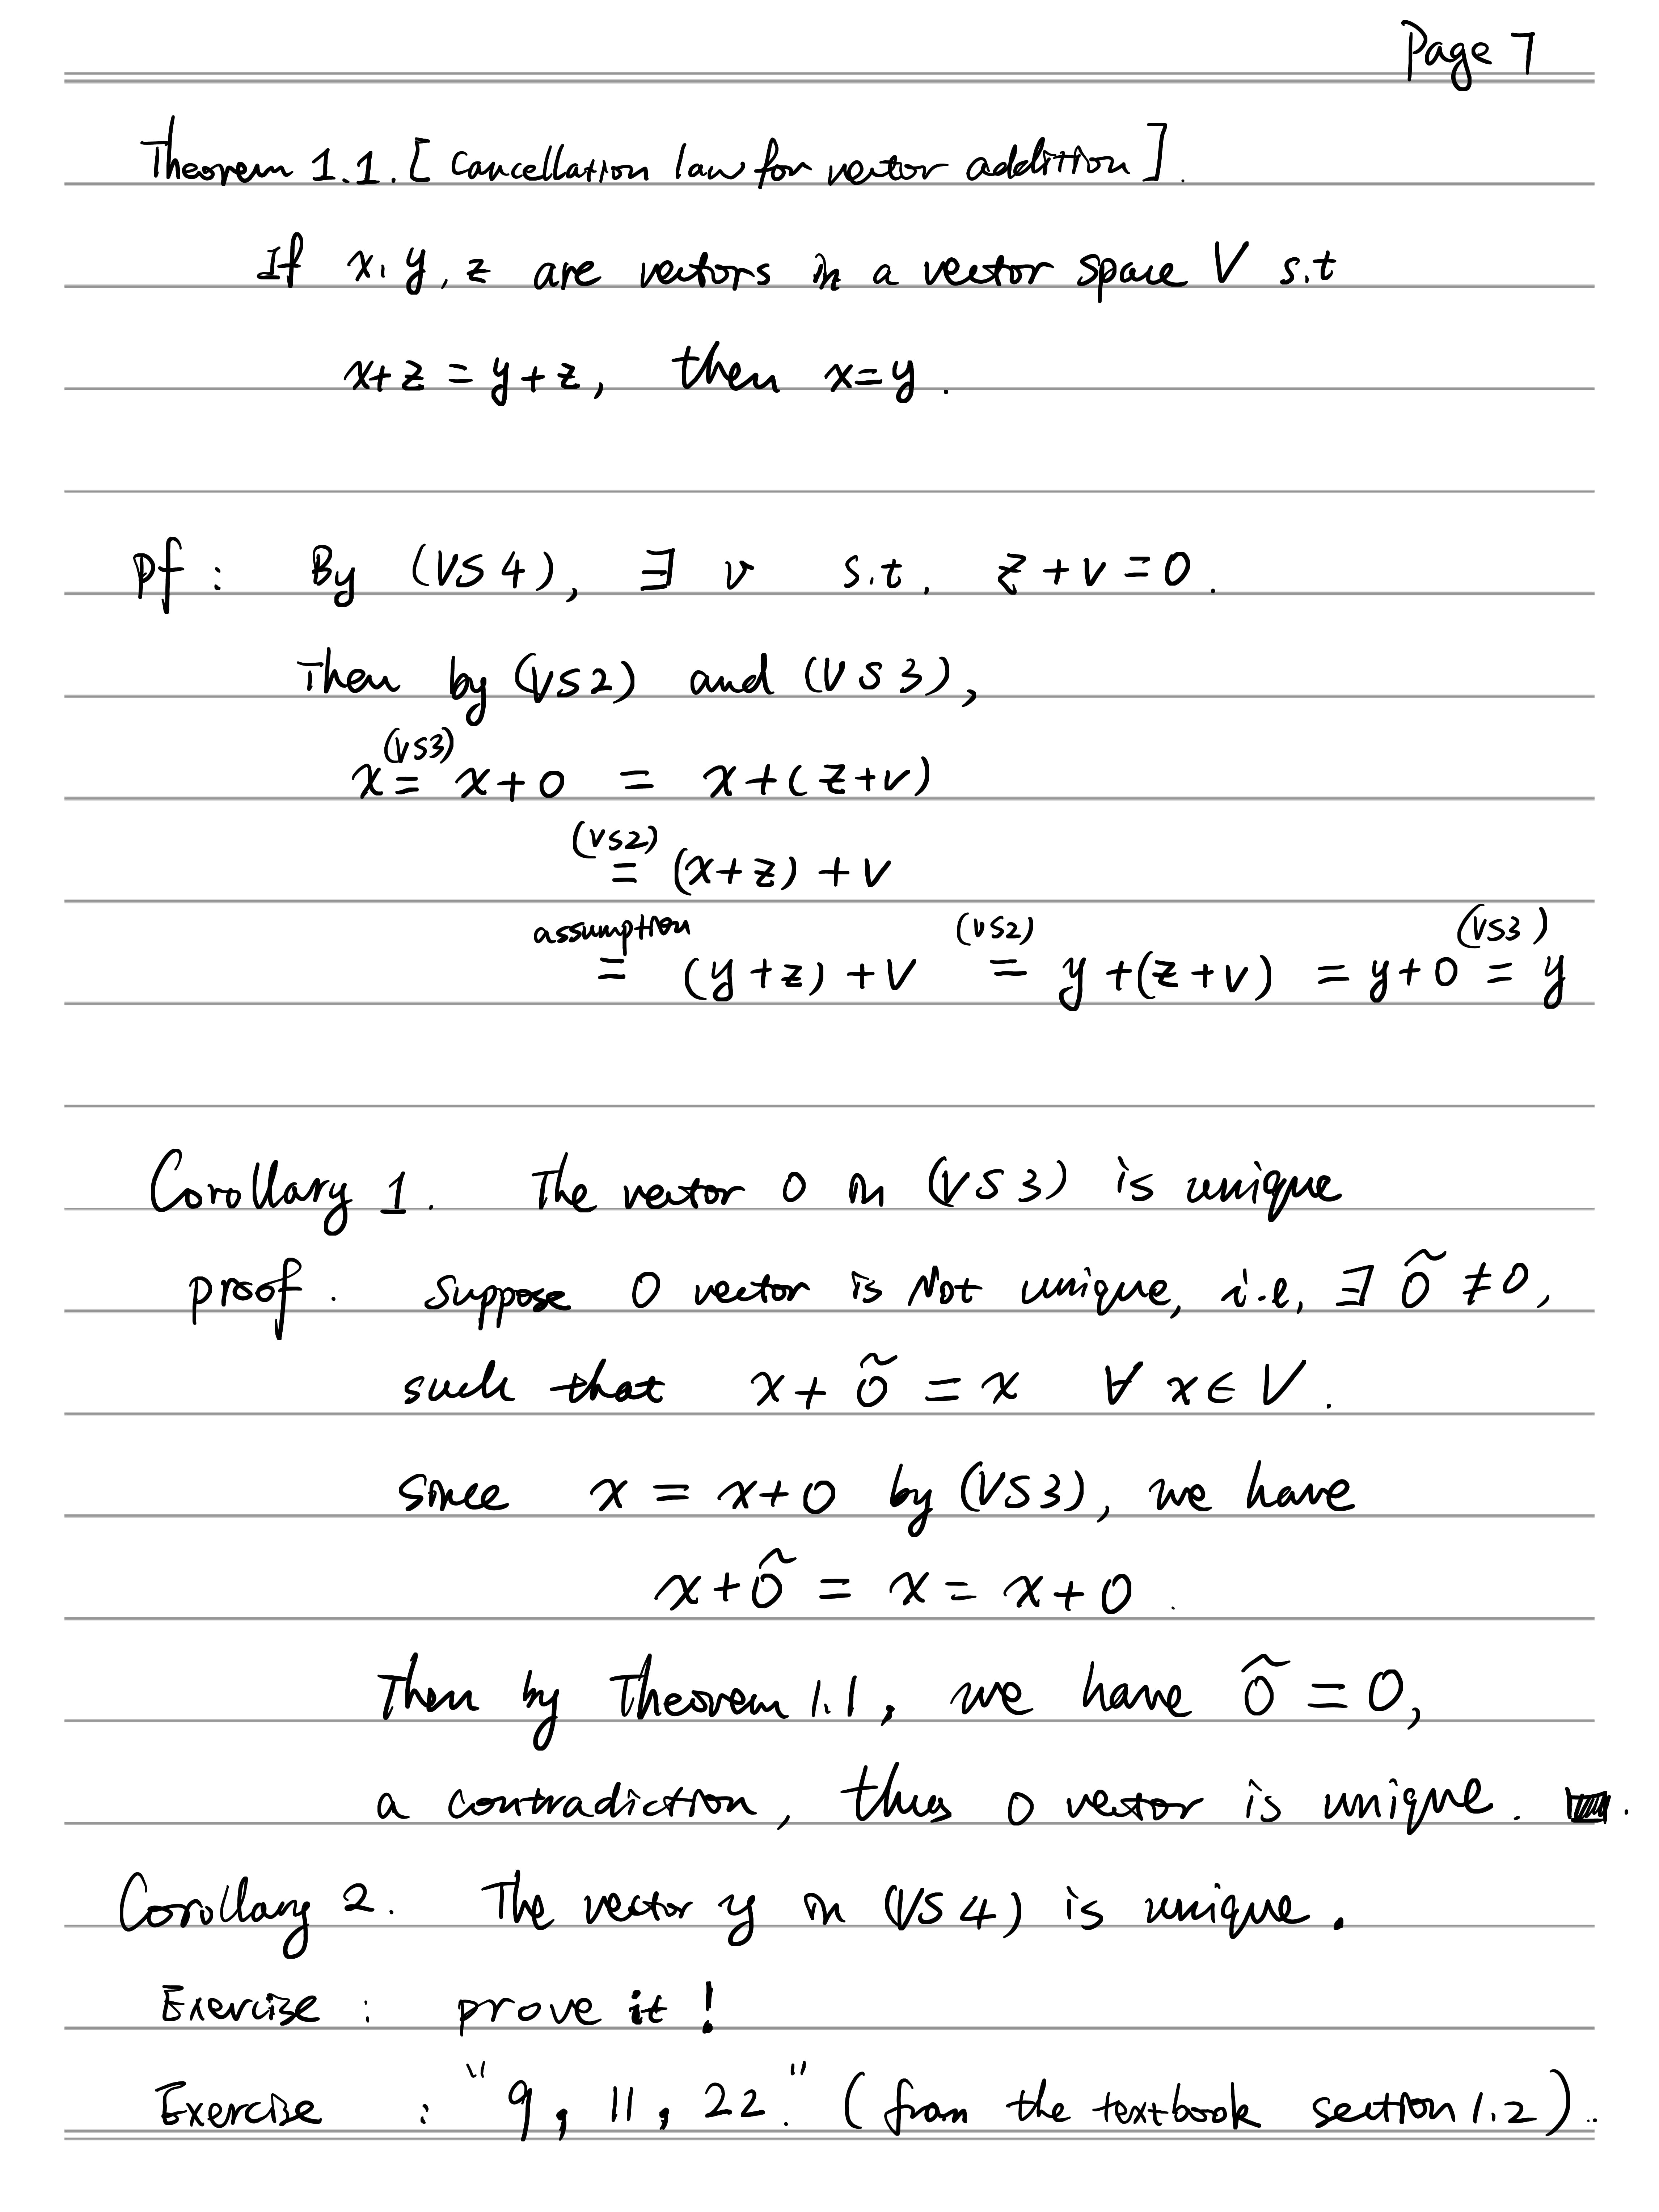 Page 7
Theorem 1.1. [Cancellation law for vector addition].
If x, y, z are vectors in a vector space V s.t
x+z = y+z, then x=y.
Pf : By (VS4), ∃ v s.t. z+v=0.
Then by (VS2) and (VS3),
x (VS3)= x+0 = x+(z+v)
(VS2)= (x+z)+v
assumption= (y+z)+v (VS2)= y+(z+v) = y+0 (VS3)= y
Corollary 1. The vector 0 in (VS3) is unique
proof. Suppose 0 vector is Not unique, i.e, ∃ 0̃ ≠ 0,
such that x+0̃ = x ∀ x∈V.
Since x = x+0 by (VS3), we have
x+0̃ = x = x+0.
Then by Theorem 1.1, we have 0̃ = 0,
a contradiction, thus 0 vector is unique. ■.
Corollary 2. The vector y in (VS4) is unique.
Exercise : prove it!
Exercise : "9, 11, 22." (from the textbook section 1.2)..